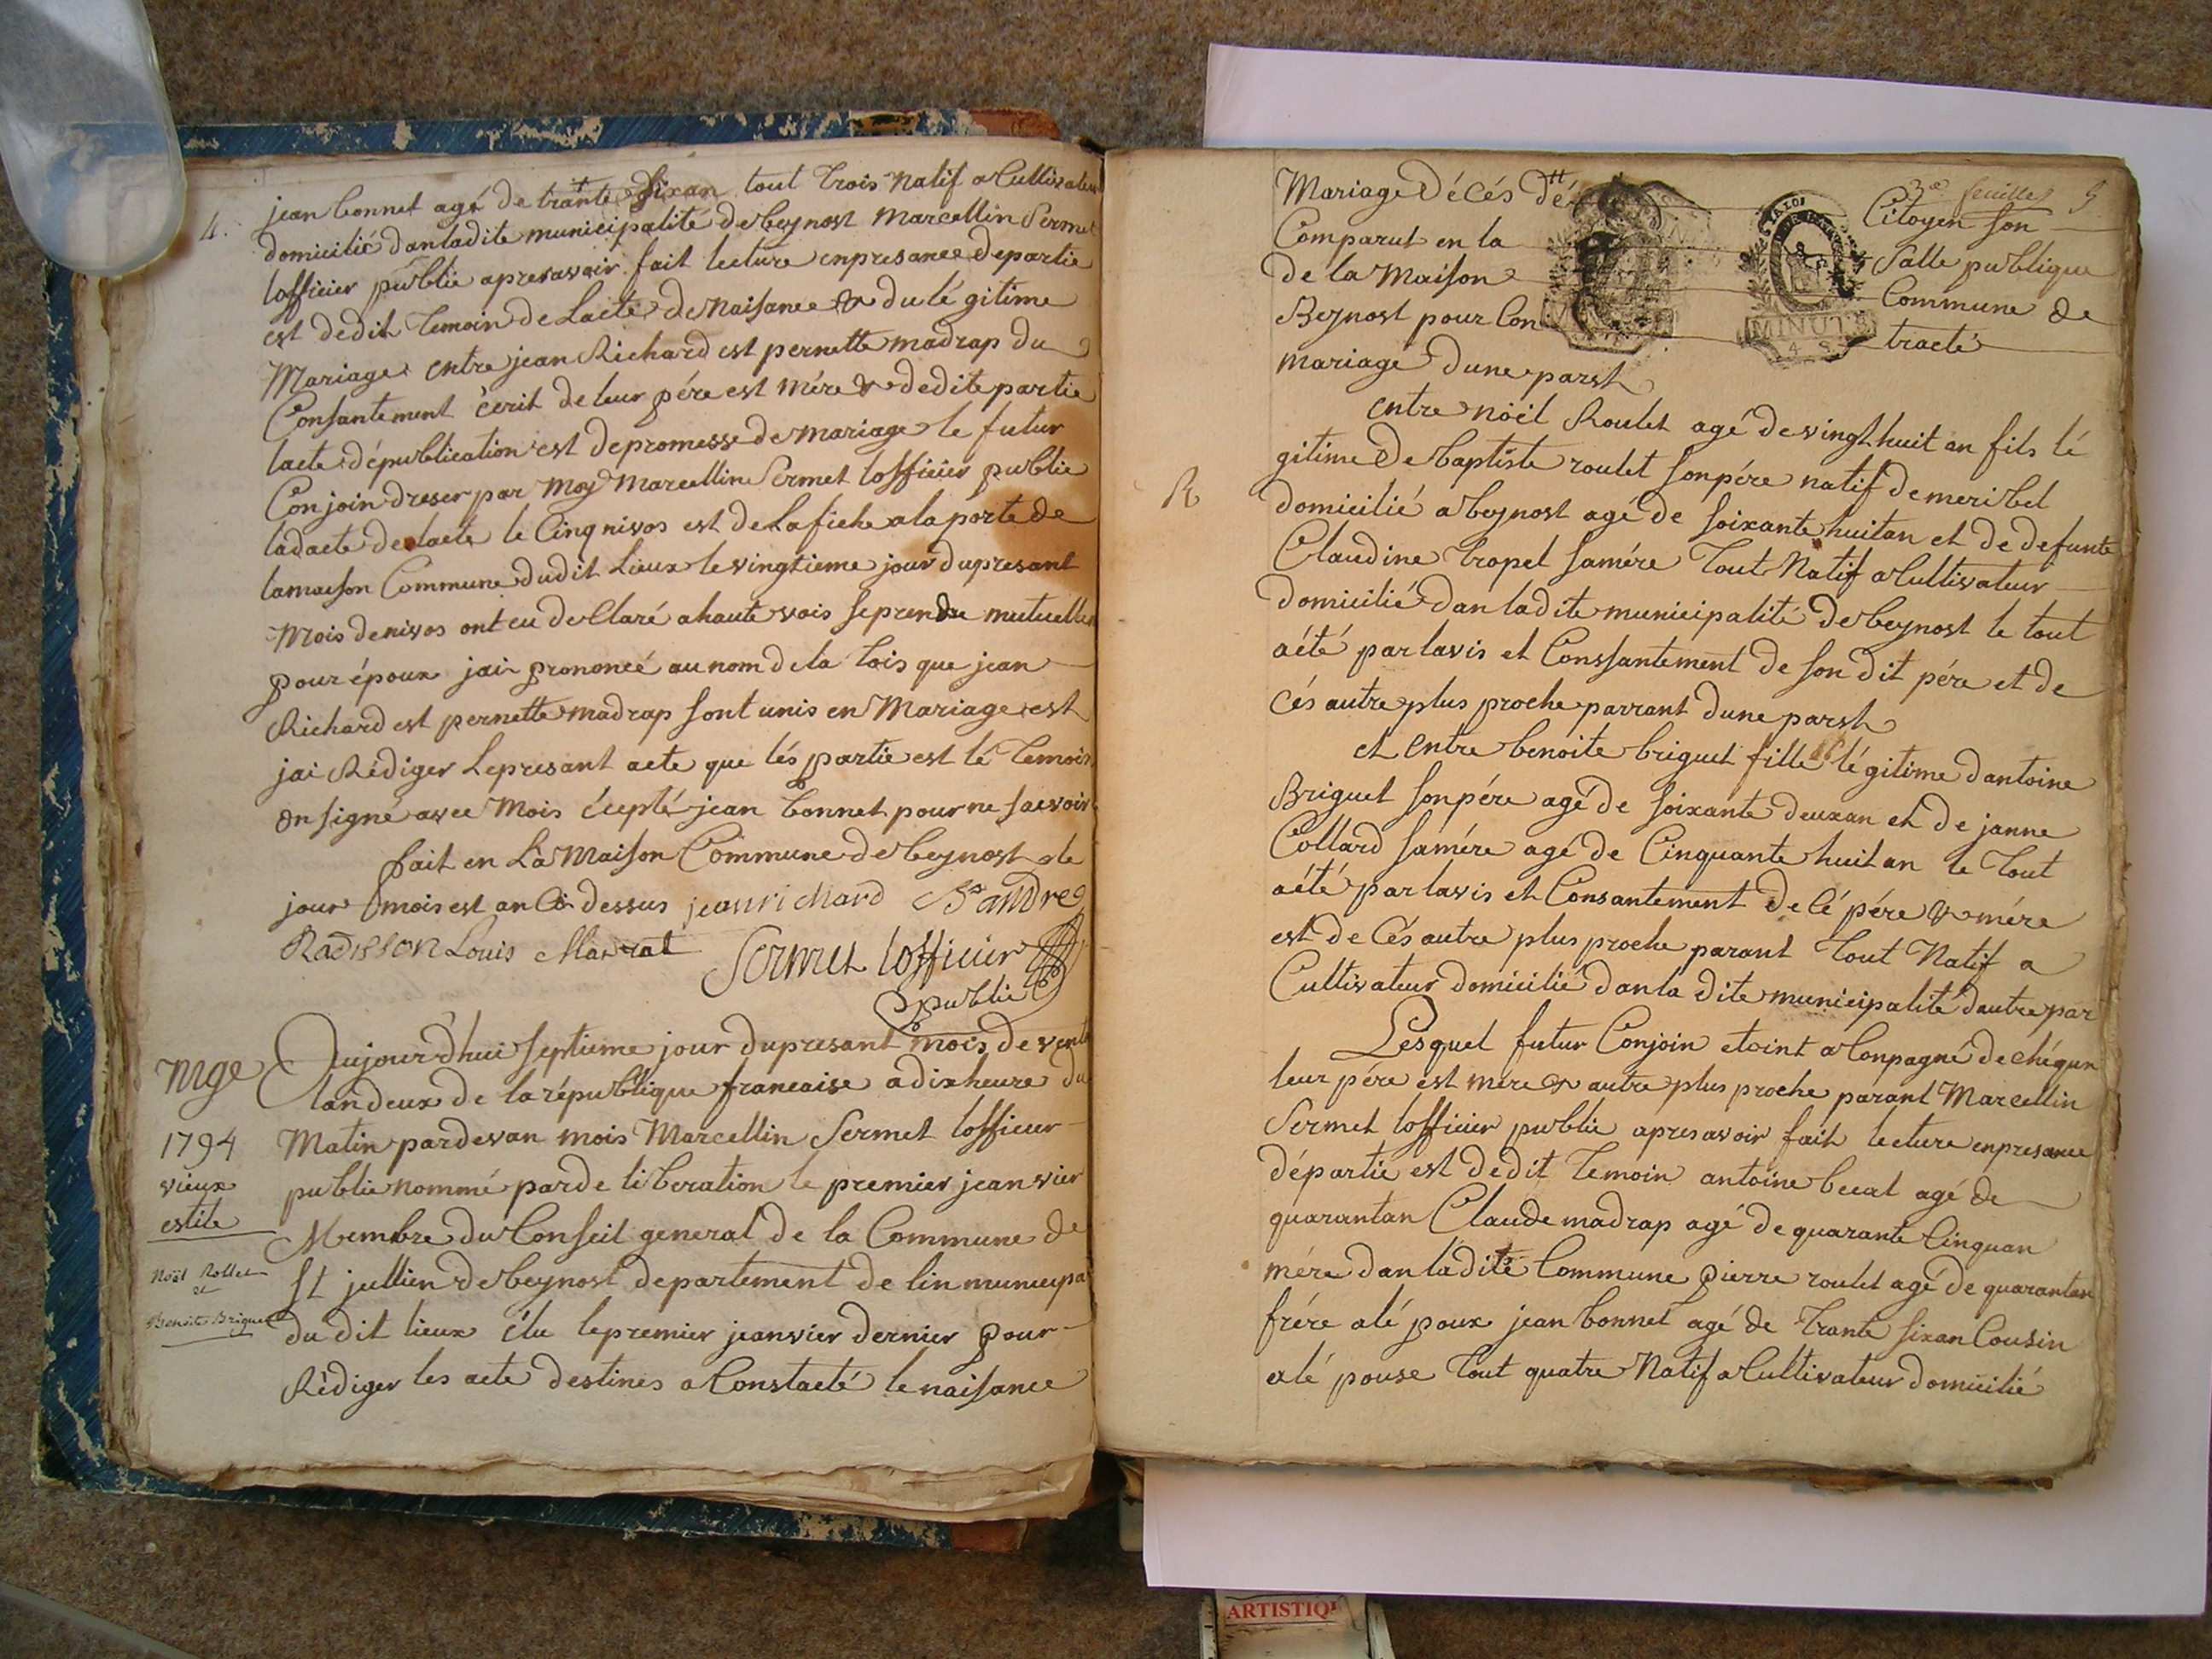 4.
jean bonnet agé de trante sixan tout trois Natif a Cultivateur
domicilié dan ladite municipalité de beynost Marcellin Sermet
lofficier publie apresavoir fait lecture enpresance departie
est dedit temoin de Lacte de Naisance & du légitime
Mariage entre jean Richard est pernette madrap du
Consantement écrit de leur pére est mére & dedite partie
lacte dépublication est depromesse de mariage le futur
Conjoin dreser par Moy Marcellin Sermet lofficier publie
ladacte delacte le Cinq nivos est de Lafiche ala porte de
lamaison Commune dudit Lieux le vingtieme jour dupresant
Mois de nivos ont eu declaré ahaute vois seprendre mutuelle
pour époux jai prononcé au nom de la Lois que jean
Richard est pernette madrap sont unis en Mariage est
jai Rédiger Lepresant acte que lés partie est lé Temoin
on signé avec Mois éxepté jean bonnet pour ne saevoir
fait en La Maison Commune de beynost le
jour mois est an Ci dessus jean richard Bt andre
Radisson Louis Madrat Sermet lofficier
publie
Mge
1794
vieux
estile
Noël Rollet
et
Benoite Briguet
Aujourdhui septieme jour dupresant mois de vento
lan deux de la république francaise a dix heure du
Matin pardevan mois Marcellin Sermet lofficier
publie nommé parde liberation le premier jeanvier
Membre du Conseil general de la Commune de
St jullien de beynost departement de lin municipa
du dit lieux élu le premier jeanvier dernier pour
Rédiger les acte destines a Constacté le naisance
3e feuille
Mariage Décés dtt dé Citoyen son
Comparut en la Salle publique
de la Maison Commune de
Beynost pour Con tracté
MINUTE
LA LOI
mariage dune parst
R
entre nöel Roulet agé de vingt huit an fils lé
gitime De baptiste roulet son pére natif de meribel
domicilié a beynost agé de soixante huitan et de defunte
Claudine tropel samére Tout Natif a Cultivateur
domicilié dan ladite municipalité de beynost le tout
aété par lavis et Conssantement de son dit pére et de
Cés autre plus proche parrant dune parst
et entre benoite briguet fille légitime dantoine
Briguet son pére agé de soixante deuxan et de janne
Collard samére agé de Cinquante huit an le Tout
aété par lavis et Consantement de Cé pére & mére
est de Cés autre plus proche parant Tout Natif a
Cultivateur domicilié dan la dite municipalité dautre par
Lesquel futur Conjoin etoint a Conpagné de chéqun
leur pére est mere & autre plus proche parant Marcellin
Sermet lofficier publie apresavoir fait lecture enpresance
départie est dedit temoin antoine becat agé de
quarantan Claude madrap agé de quarante Cinquan
mére dan ladite Commune pierre roulet agé de quarantan
frére alé poux jean bonnet agé de Trante sixan Cousin
alé pouse Tout quatre Natif a Cultivateur domicilié
ARTISTIQ